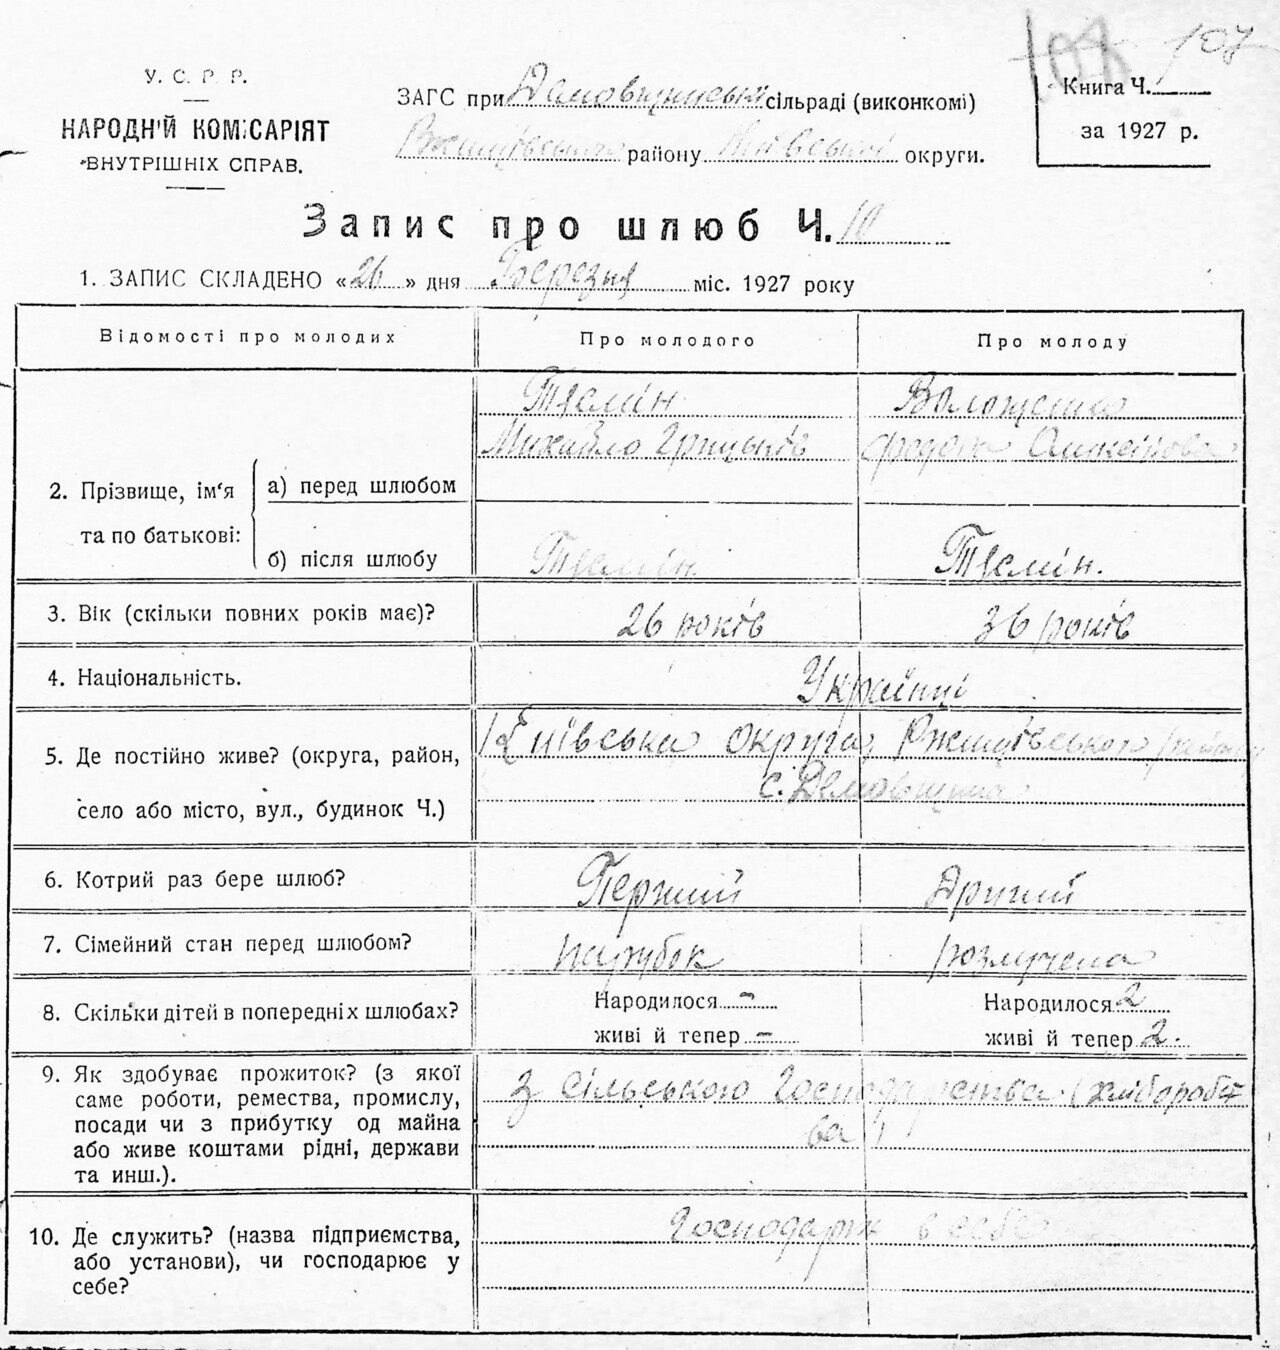 107
У. С. Р. Р.
НАРОДНІЙ КОМІСАРІЯТ
ВНУТРІШНІХ СПРАВ.
ЗАГС при сільраді (виконкомі)
району Київської округи.
Книга Ч.
за 1927 р.
Запис про шлюб Ч. 10
1. ЗАПИС СКЛАДЕНО «26» дня Березня міс. 1927 року
Відомості про молодих
Про молодого
Про молоду
2. Прізвище, ім'я та по батькові:
а) перед шлюбом
Михайло Грицьків
б) після шлюбу
3. Вік (скільки повних років має)?
26 років
36 років
4. Національність.
Українці
5. Де постійно живе? (округа, район,
село або місто, вул., будинок Ч.)
Київська округа, Ржищівського району
с. Демовщина
6. Котрий раз бере шлюб?
Перший
Другий
7. Сімейний стан перед шлюбом?
парубок
розлучена
8. Скільки дітей в попередніх шлюбах?
Народилося -
живі й тепер -
Народилося 2
живі й тепер 2.
9. Як здобуває прожиток? (з якої
саме роботи, ремества, промислу,
посади чи з прибутку од майна
або живе коштами рідні, держави
та инш.).
З сільського господарства (хліборобст
ва)
10. Де служить? (назва підприємства,
або установи), чи господарює у
себе?
в себе